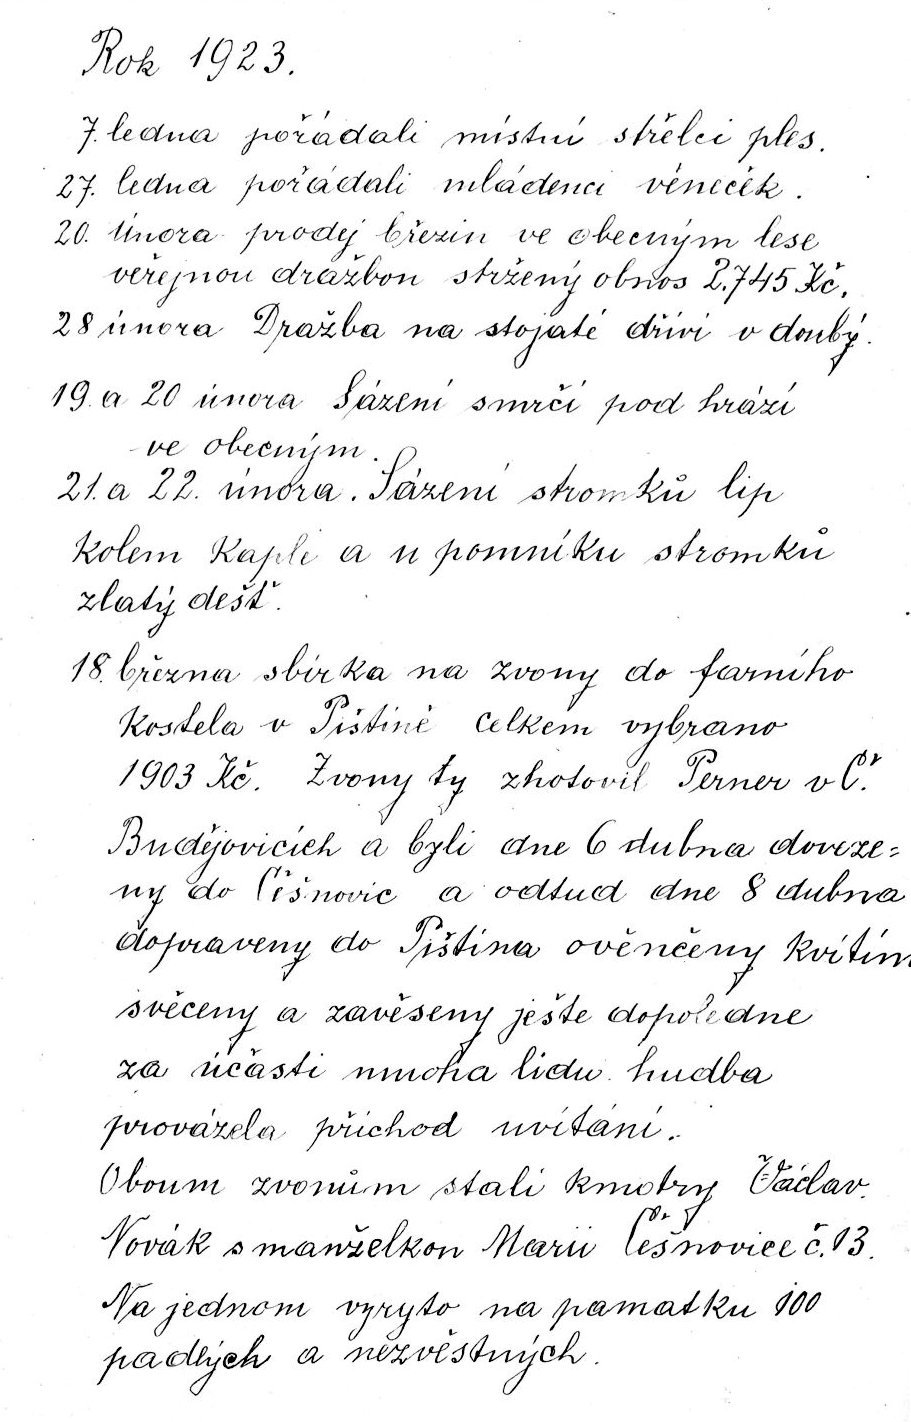 Rok 1923.
7. ledna pořádali místní střelci ples.
27. ledna pořádali mládenci věneček.
20. února prodej březin ve obecným lese
veřejnou dražbou stržený obnos 2.745 Kč.
28 února Dražba na stojaté dříví v doubý.
19. a 20 února Sázení smrčí pod hrází
ve obecným.
21. a 22. února. Sázení stromků lip
kolem Kapli a u pomníku stromků
zlatý dešť.
18. března sbírka na zvony do farního
kostela v Pištině celkem vybrano
1903 Kč. Zvony ty zhotovil Perner v Č.
Budějovicích a byli dne 6 dubna doveze=
ny do Češnovic a odtud dne 8 dubna
dopraveny do Pištína ověnčeny kvítím
svěceny a zavěseny ješte dopoledne
za účasti mnoha lidu hudba
provázela příchod uvítání.
Oboum zvonům stali kmotry Václav
Novák s manželkou Marii Češnovice č. 13.
Na jednom vyryto na pamatku 100
padlých a nezvěstných.